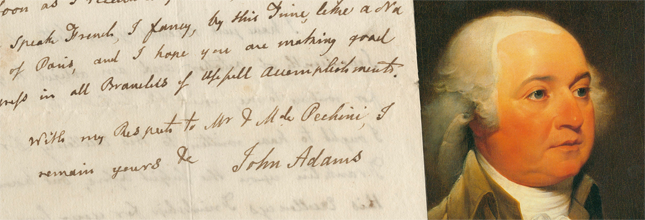 soon as I receive
Speak French, I fancy, by this Time, like a Na
of Paris, and I hope you are making good
ress in all Branches of Usefull Accomplishments.
With my Respects to Mr & Mde Pechini, I
remain yours &c John Adams